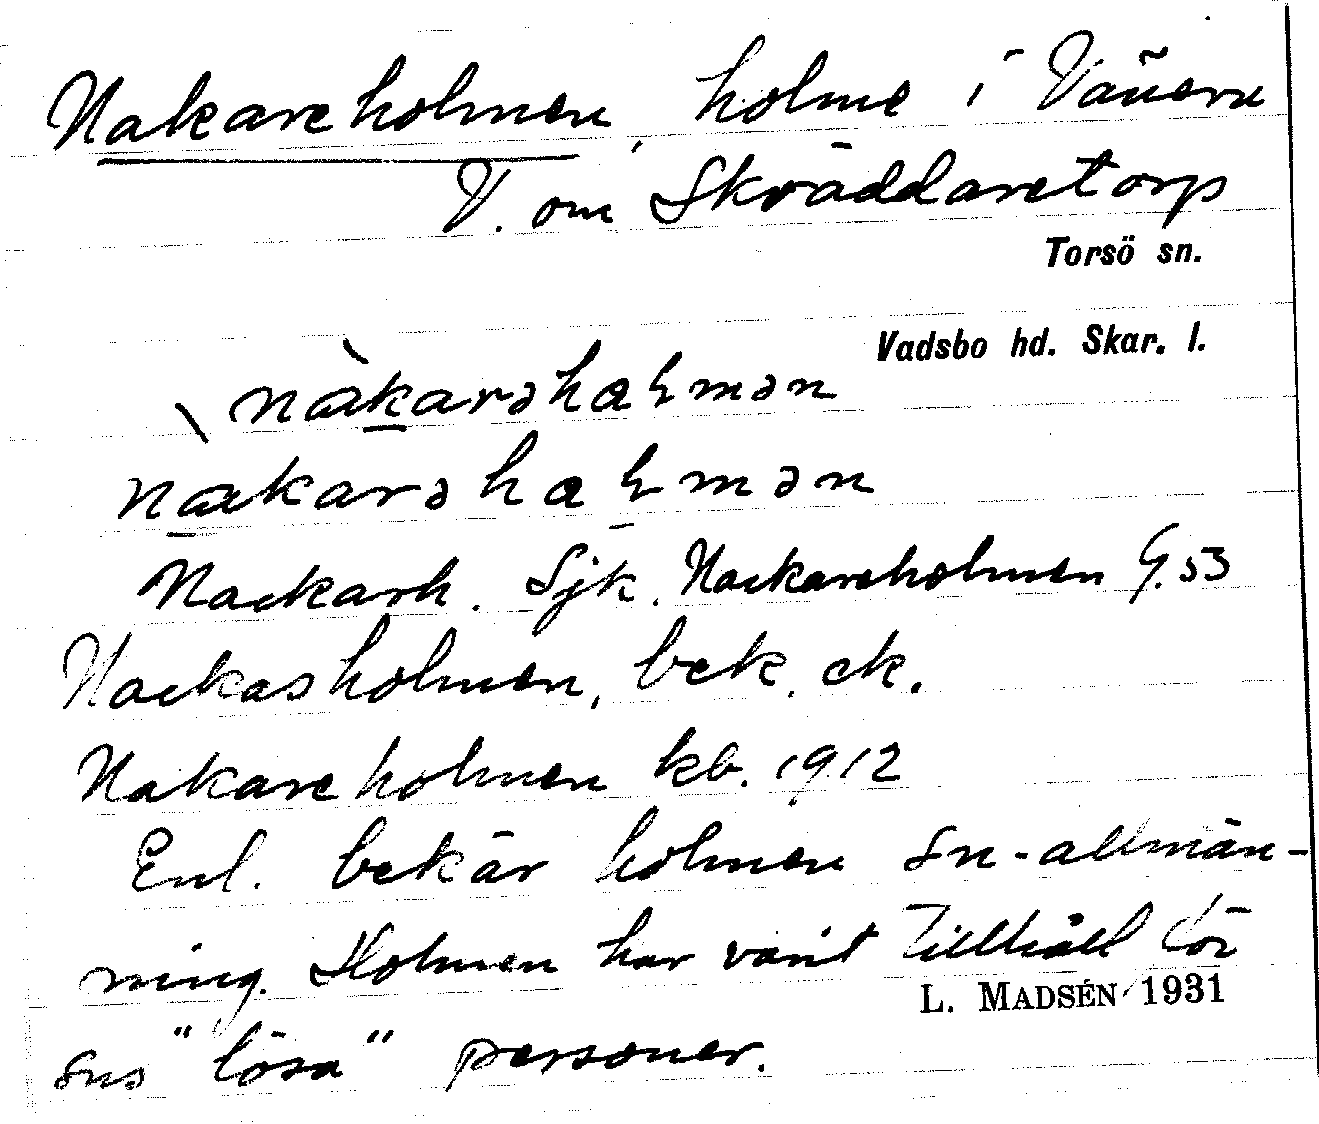 Nakareholmen, holme i Vänern
V. om Skräddaretorp
Torsö sn.
Vadsbo hd. Skar. l.
Nackarh. Sjk. Nackareholmen G. 53
Nackasholmen, bek. ek.
Nakareholmen kb. 1912
Enl. bek är holmen sn-allmän-
ning. Holmen har varit tillhåll för
L. MADSÉN 1931
sns "lösa" personer.